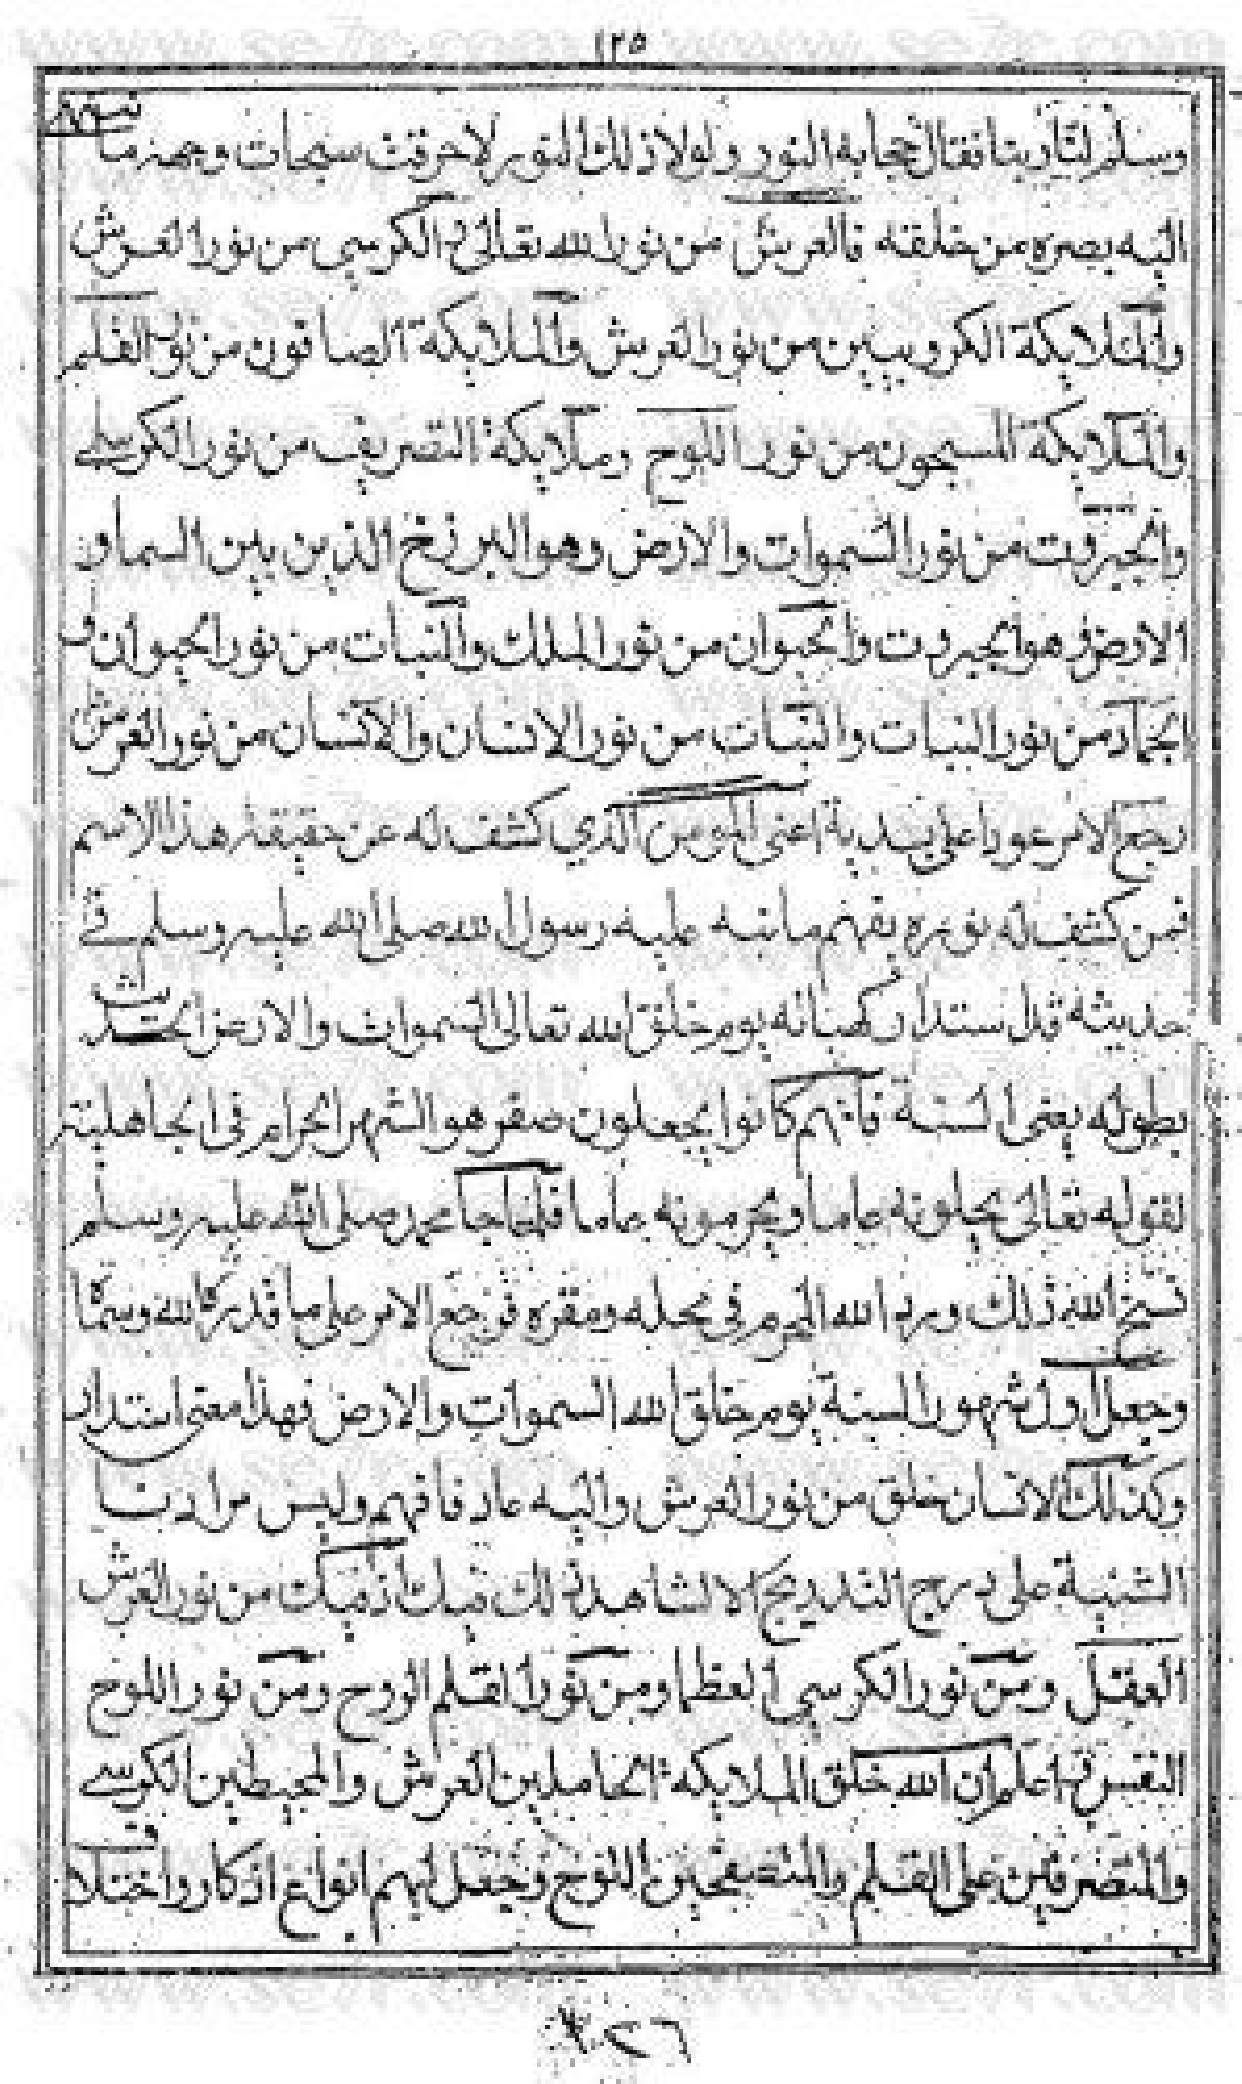 ١٢٥
وسلم لنا ربنا فقال حجابه النور ولولا ذلك النور لاحرقت سبحات وجهه ما
اليه بصره من خلقه فالعرش من نور الله تعالى والكرسي من نور العرش
والملايكة الكروبيين من نور العرش والملايكة الصافون من نور القلم
والملايكة المسبحون من نور اللوح وملايكة التصريف من نور الكرسي
والجبروت من نور السموات والارض وهو البرزخ الذين بين السما و
الارض هو الجبروت والحيوان من نور الملك والنبات من نور الحيوان و
الجماد من نور النبات والنبات من نور الانسان والانسان من نور العرش
رجع الامر عورا على اعنى المومن الذي كشف له عن حقيقة هذا الاسم
فمن كشف له نوره يفهم ما نبه عليه رسول الله صلى الله عليه وسلم في
حديثه قد استدار كهياته يوم خلق الله تعالى السموات والارض الحديث
بطوله يعنى السنة فانهم كانوا يجعلون صفر هو الشهر الحرام فى الجاهلية
لقوله تعالى يحلونه عاما ويحرمونه عاما فلما جا محمد صلى الله عليه وسلم
نسخ الله ذلك ورد الله المحرم فى محله ومقره فرجع الامر على ما قدره الله
وجعل اول شهور السنة يوم خلق الله السموات والارض فهذا معنى استدار
وكذلك الانسان خلق من نور العرش واليه عاد فافهم وليس مرادنا
على درج التدريج الا لتشاهد ذلك فيك اذ فيك من نور العرش
العقل ومن نور الكرسي العظما ومن نور القلم الروح ومن نور اللوح
النفس اعلم ان الله خلق الملايكه الحاملين العرش والمحيطين الكرسي
والمتصرفين على القلم والمتصفحين اللوح وجعل لهم انواع اذكار واختلاف